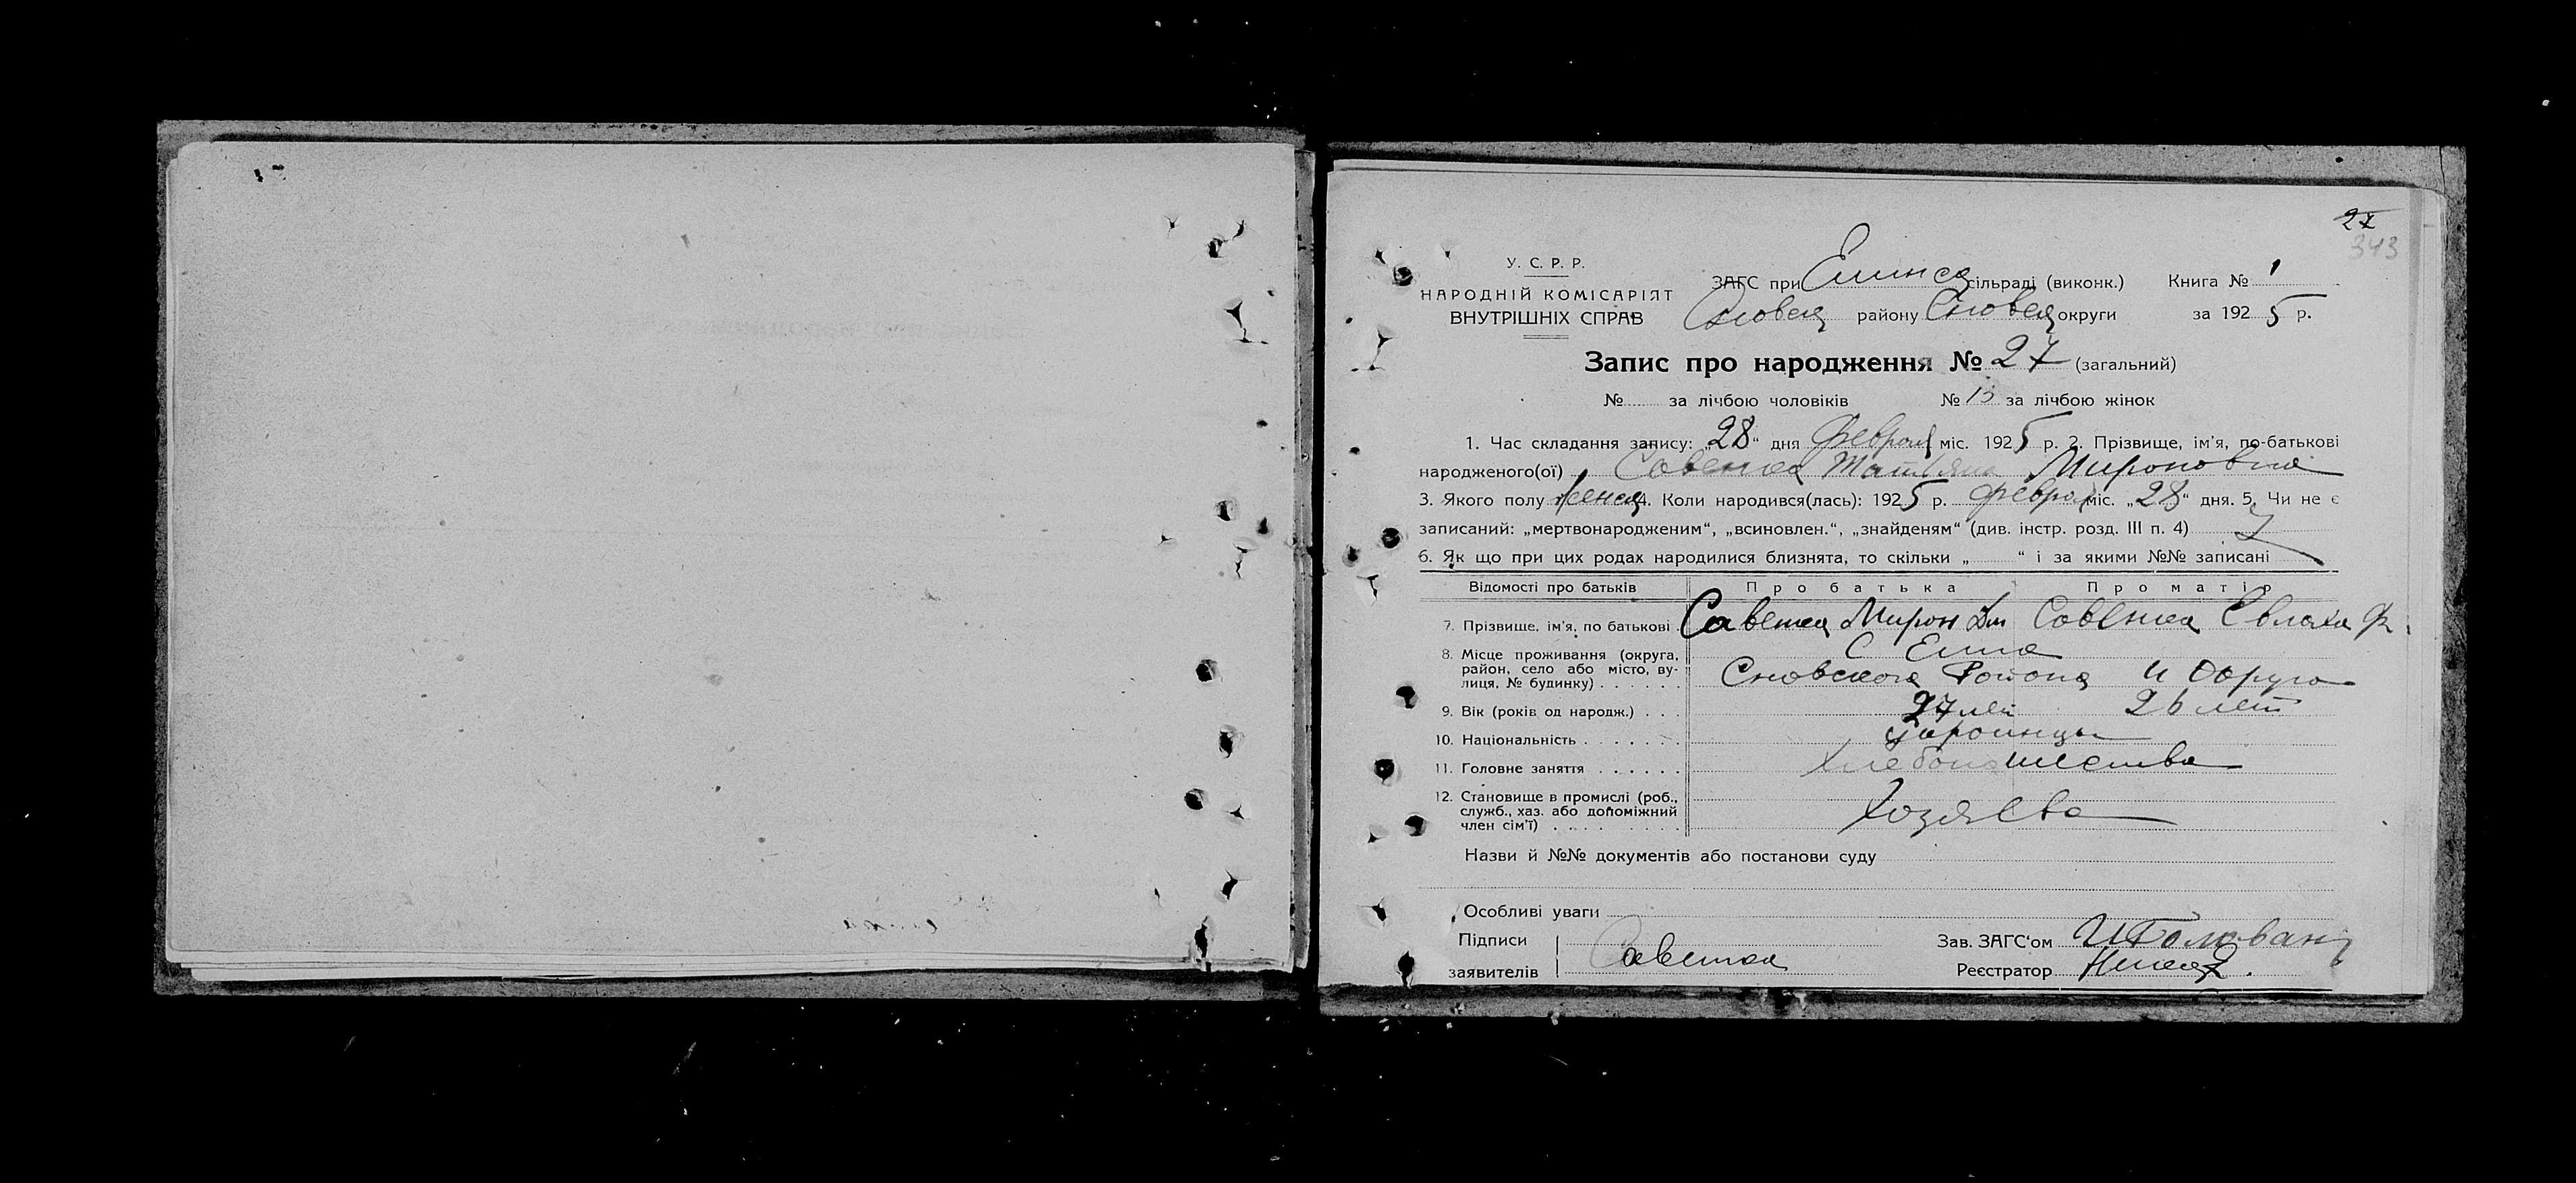 27
343
У. С. Р. Р.
НАРОДНІЙ КОМІСАРІЯТ
ВНУТРІШНІХ СПРАВ
ЗАГС при сільраді (виконк.) Книга № 1
Сновск району Сновск округи за 1925 р.
Запис про народження № 27 (загальний)
№ за лічбою чоловіків № 13 за лічбою жінок
1. Час складання запису: „28“ дня Февраля міс. 1925 р. 2. Прізвище, ім'я, по-батькові
народженого(ої) Савенка Татьяна Мироновна
3. Якого полу женск 4. Коли народився(лась): 1925 р. Феврал міс. „28“ дня. 5. Чи не є
записаний: „мертвонародженим“, „всиновлен.“, „знайденям“ (див. інстр. розд. III п. 4)
6. Як що при цих родах народилися близнята, то скільки „ “ і за якими №№ записані
Відомості про батьків Про батька Про матір
7. Прізвище, ім'я, по батькові Савенка Мирон Дм Савенка Евлаха Ф
8. Місце проживання (округа, район, село або місто, вулиця, № будинку) С Елино
Сновского Района и Округа
9. Вік (років од народж.) 27 лет 26 лет
10. Національність Украинцы
11. Головне заняття Хлебопашества
12. Становище в промислі (роб., служб., хаз. або допоміжний член сім'ї) Хозяева
Назви й №№ документів або постанови суду
Особливі уваги
Підписи Зав. ЗАГС'ом
заявителів Савенка Реєстратор